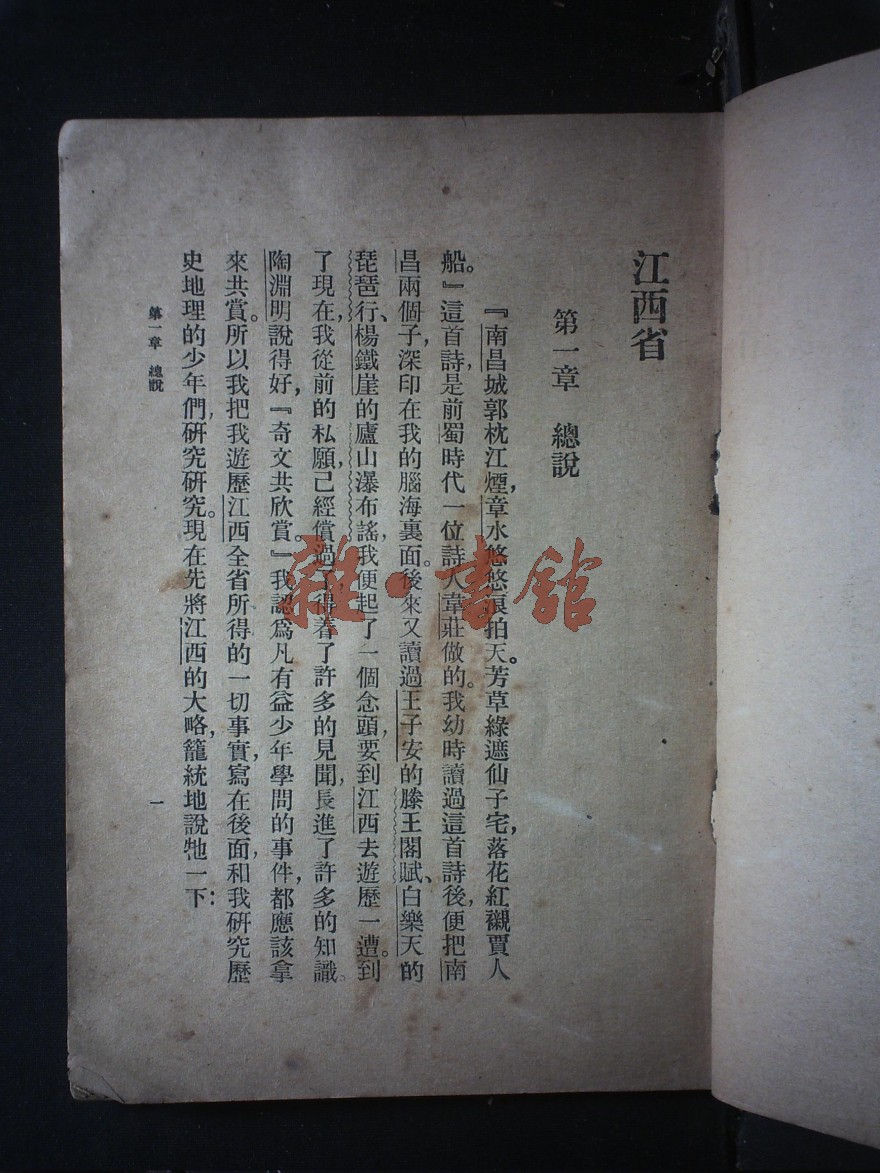 江西省
第一章　總說
『南昌城郭枕江煙，章水悠悠浪拍天。芳草綠遮仙子宅，落花紅襯賈人
船。』這首詩，是前蜀時代一位詩人韋莊做的。我幼時讀過這首詩後，便把南
昌兩個子，深印在我的腦海裏面。後來又讀過王子安的滕王閣賦、白樂天的
琵琶行、楊鐵崖的廬山瀑布謠，我便起了一個念頭，要到江西去遊歷一遭。到
了現在，我從前的私願，已經償過了，得着了許多的見聞，長進了許多的知識。
陶淵明說得好，『奇文共欣賞。』我認爲凡有益少年學問的事件，都應該拿
來共賞。所以我把我遊歷江西全省所得的一切事實，寫在後面，和我研究歷
史地理的少年們，研究研究。現在先將江西的大略，籠統地說牠一下：
第一章　總說
一
雜·書館